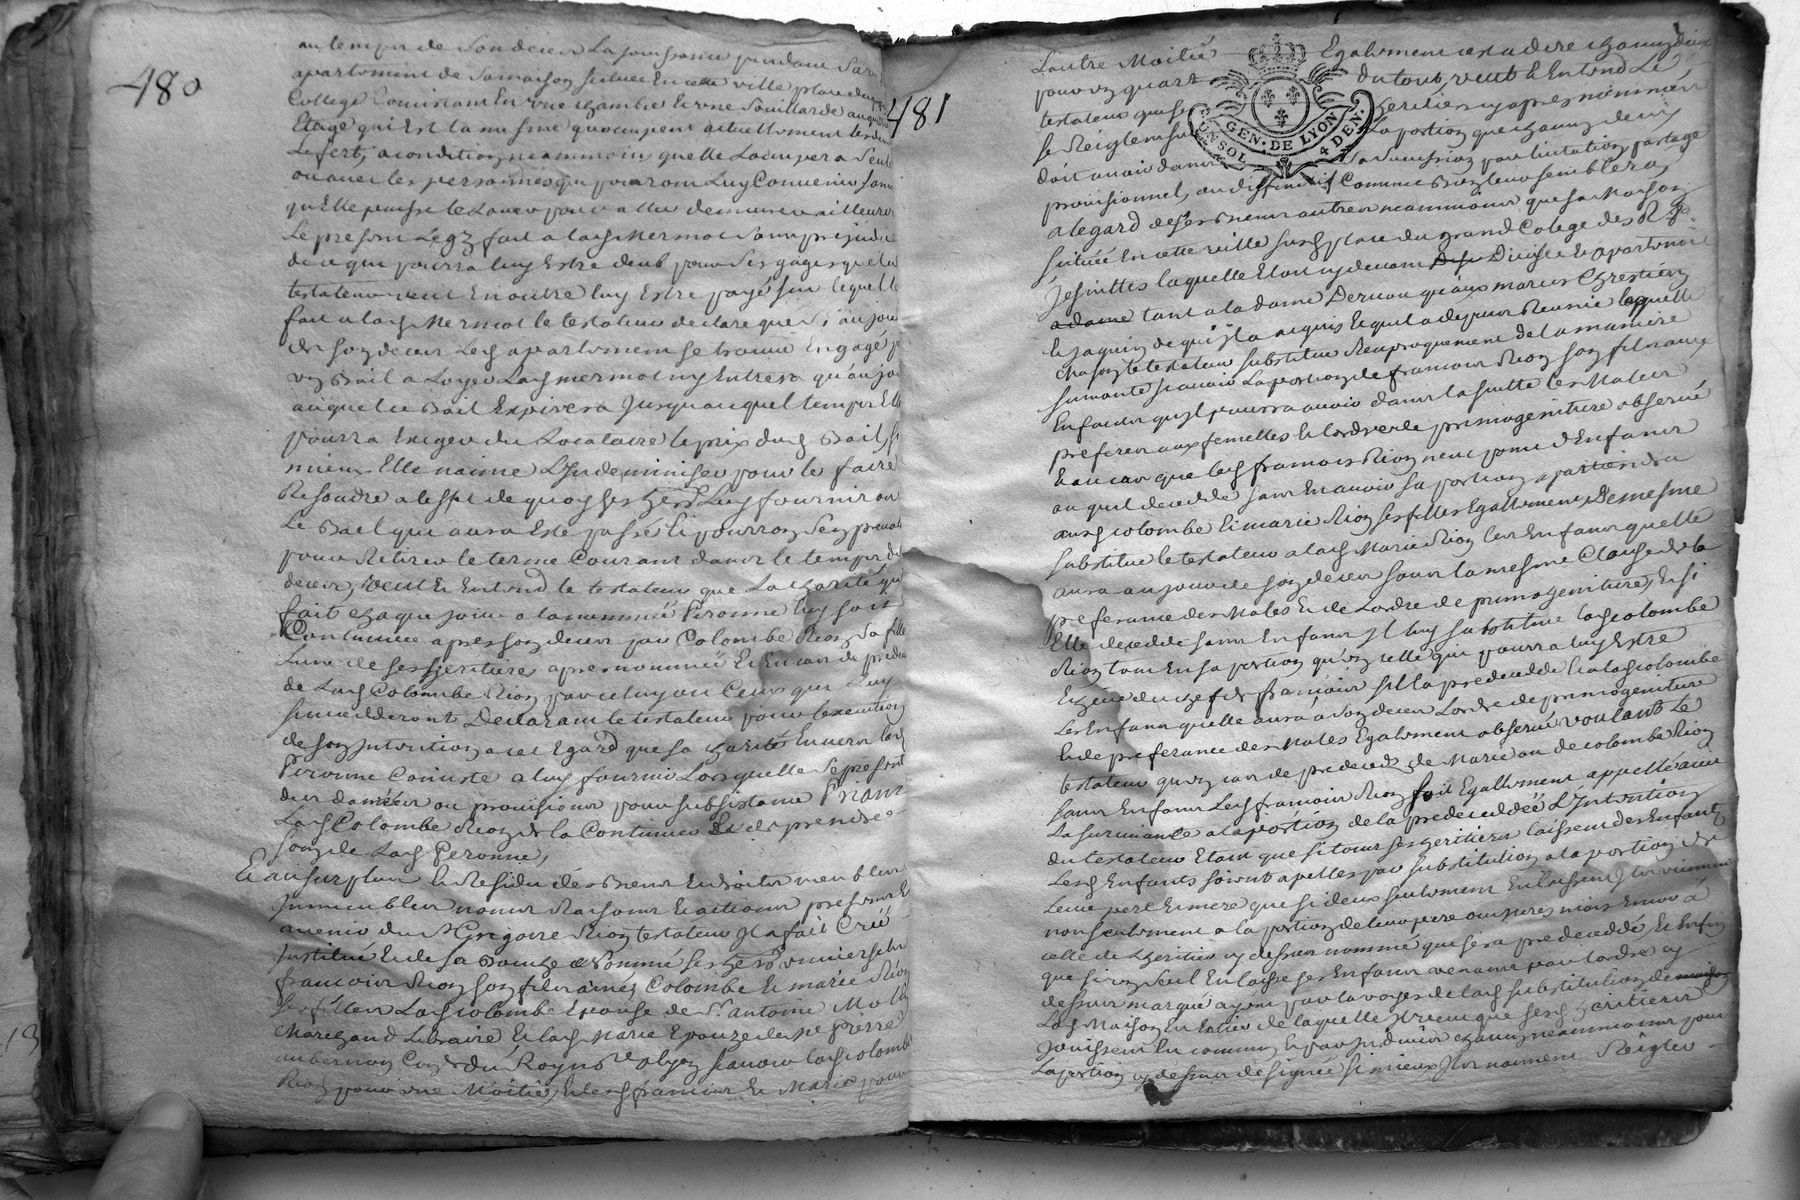 480
au temps de son deces La jouissance pendant sa vie
apartement de sa maison scituée En cette ville place du
College Consistant En une chambre Et une Souillarde au
Etage qui Est la mesme quocupent actuellement les
a condition neammoins quelle Loccupera Seule
ou avec les personnes qui pourront Luy Convenir sans
quElle puisse le Louer pour aller demeurer ailleurs
Le present Legz fait a lad. Mermot sans prejudice
de ce qui pourra luy Estre deub pour Ses gages que le
testateur veut En outre luy Estre payé sur lequel
fait a lad. Mermot le testateur declare que Si au jour
de son deces Led. apartement se trouve Engagé
un Bail a Loyer Lad. mermot ny Entrera qu'au jour
auquel ce Bail Expirera Jusqu auquel temps Elle
pourra Exiger du Locataire le prix dud. Bail, si
mieux Elle n'aime L'Indemniser pour le faire
Resoudre a leffet de quoy ses her. Luy fourniront
Le Bail qui aura Esté passé
pour Retirer le terme Courant dans le temps du
deces, veut Et Entend le testateur que La charité qu'il
fait chaque jour a la nommée Peronne luy soit
Continuée apres son deces par Colombe Rion Sa fille
Lune de ses heritiere apres nommée Et En cas de
de Lad. Colombe Rion par celuy ou Ceux qui Luy
succedderont Declarant le testateur pour lexecution
de son Intention a cet Egard que sa charité Envers lad.
Peronne Consiste a luy fournir Lors quelle
des danrées ou provisions pour subsistance Priant
Lad. Colombe Rion de la Continuer Et de prendre
soin de Lad. Peronne,
Et au surplus Et Residu des Biens Et droits meubles
Immeubles noms Raisons Et actions presents Et
avenir du S.r Gregoire Rion testateur Il a fait Créé
Institué Et de sa Bouche Nommé ses her. universels
francois Rion son fils ainé, Colombe Et marie Rion
ses filles Lad. Colombe Epouse de S.r antoine Molin
Marchand Libraire Et lad. Marie Epouze de Me Pierre
aubernon scavoir lad. Colombe
Rion pour une Moitié, Et lesd. francois Et Marie pour
481
Lautre Moitié Egalement cest a dire chacun deux
pour un quart du tout, veut Et Entend Le
testateur que heritiers cy apres nommés
se Reiglent La portion que chacun deux
doit avoir dans sa succession par licitation partage
provisionnel, ou diffinitif Comme Bon leur semblera,
a legard de ses Biens autres neammoins que sa Maison
scituée En cette ville sud. place du grand Colege des R.P.
Jesuittes laquelle Etoit cy devant Divisée Et apartenoit
tant a la dame qu'aux maries Chrestien
Et de qui Il la acquis Et quil a depuis Reunie laquelle
maison le testateur substitue Reciproquement de la maniere
suivante scavoir La portion de francois Rion son fils aux
Enfants quIl pourra avoir dans la suitte les Males
preferes aux femelles Et lordre de primogeniture observé
Et au cas que led. francois Rion neut point d'Enfants
ou quil decedde sans En avoir sa portion apartiendra
ausd. colombe Et marie Rion ses filles Egallement, De mesme
substitue le testateur a lad. Marie Rion les Enfants quelle
aura au jour de son deces sous la mesme Clause de la
preferance des Males Et de Lordre de primogeniture, Et si
Elle decedde sans Enfans Il luy substitue lad. colombe
Rion tant En sa portion qu'En celle qui pourra luy Estre
Echeue du chef de francois sil la predecedde Et a lad. colombe
Les Enfans quelle aura a son deces Lordre de primogeniture
Et de preferance des Males Egalement observé voulant Le
testateur qu'en cas de predeces de Marie ou de colombe Rion
sans Enfans Led. francois Rion soit Egallement appellé avec
La survivante a la portion de la predeceddée L'Intention
du testateur Etant que si tous ses heritiers laissent des Enfants
Lesd. Enfants soient apelles par substitution a la portion de
Leur pere Et mere que si deux seulement En laissent Ils viennent
non seulement a la portion de leurs pere ou meres mais Encor a
celle de Lheritier cy dessus nommé qui sera predeceddé Et Enfin
que si un Seul En laisse ses Enfans venant par lordre cy
dessus marqué ayent par la voye de lad. substitution
Lad. Maison En Entier de laquelle Il veut que sesd. heritiers
Jouissent En commun Et par Indivis chacun neammoins pour
La portion cy dessus designée si mieux Ils n'aiment Reigler
GEN. DE LYON
4 DEN.